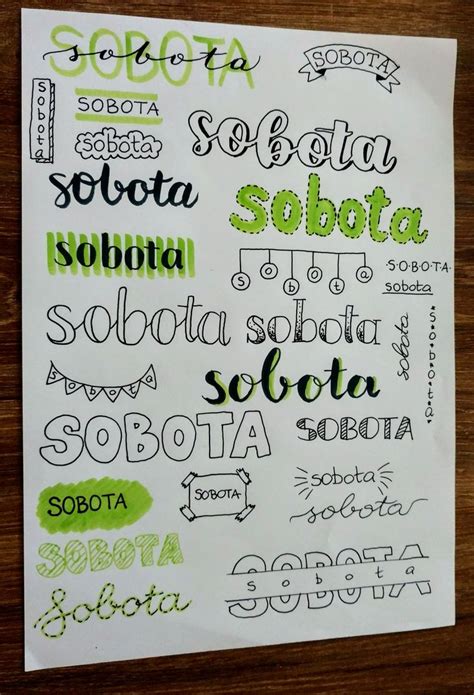 SOBOTA
sobota
SOBOTA
sobota
SOBOTA
sobota
sobota
sobota
sobota
sobota
sobota
S·O·B·O·T·A·
sobota
sobota
sobota
sobota
s·o·b·o·t·a
sobota
sobota
SOBOTA
SOBOTA
SOBOTA
SOBOTA
sobota
sobota
SOBOTA
SOBOTA
sobota
sobota